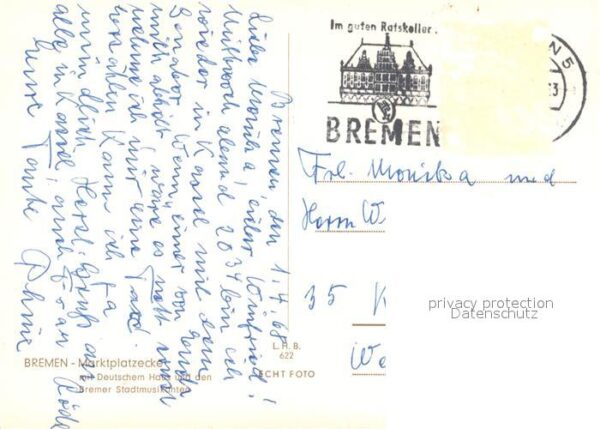 Bremen, den 1.4.68
Liebe Monika, lieber Winfried!
Mittwoch abend 20 34 bin ich
wieder in Kassel mit dem
Wenn einer von Euch
mich abholt, wäre es nett, sonst
nehme ich mir eine Taxe.
kann ich ja
mündlich. Herzl. Grüße an
alle in Kassel, auch Frau
Eure Tante
Im guten Ratskeller.
BREMEN
N 5
Frl. Monika und
Herrn W
35 K
We
privacy protection
Datenschutz
L.H.B.
622
ECHT FOTO
BREMEN - Marktplatzecke
mit Deutschem Haus und den
Bremer Stadtmusikanten